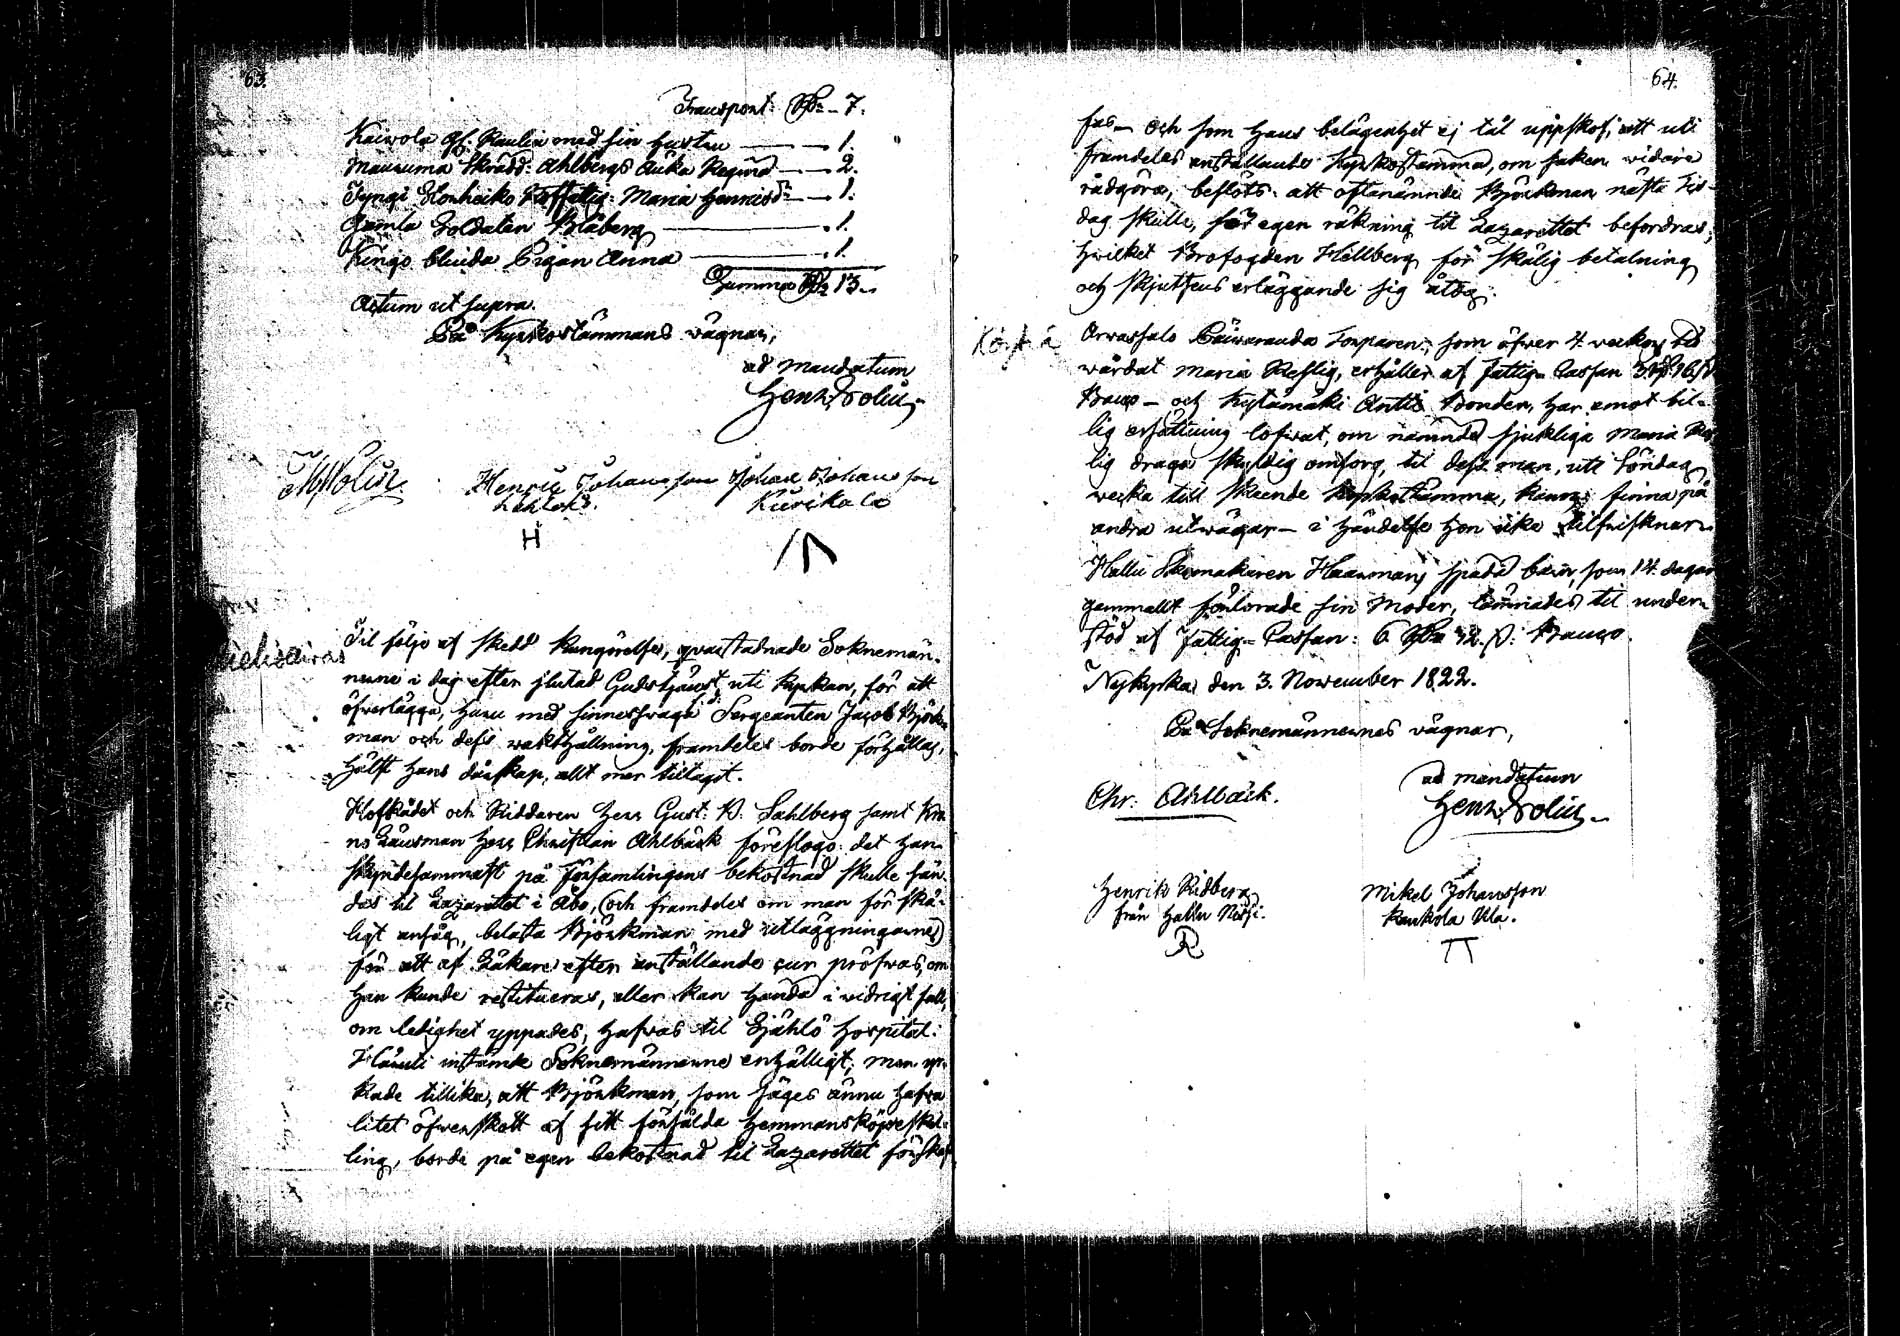 63.
Transport: Rb. 7.
Kaiwola Gl: Raulin med sin hustru — 1.
Mausuma Skrädd: Ahlbergs Änka Regina — 2.
Tyngi Maria Henricsd: — 1.
Gamla Soldaten Blåberg — 1.
Kingo blinda Pigan Anna — 1.
Summa Rb 13.
Actum ut supra.
På Kyrkostämmans vägnar,
ad mandatum
Henr: Polin
Polin
Henric Johansson Johan Johansson
H
Til följe af skedd kungörelse, qvarstadnade Soknemän-
nerne i dag efter slutad Gudstjänst, uti kyrkan, för att
öfverlägga, huru med sinnessvaga Sergeanten Jacob Björk-
man och dess wakthållning, framdeles borde förhållas,
hälst hans dårskap, allt mer tiltagit.
Hofrådet och Riddaren Herr Gust: W. Sahlberg samt Kro-
no Länsman Herr Christian Ahlbäck föreslogo: det han
skyndesammast på Församlingens bekostnad skulle sän-
das til Lazarettet i Åbo, (och framdeles om man för skä-
ligt ansåg, belasta Björkman med utläggningarne)
för att af Läkare efter anställande cur pröfwas, om
han kunde restitueras, eller kan hända i vidrigt fall,
om ledighet yppades, hafwas til Själö hospital.
Häruti instämde Soknemännerne enhälligt, men yr-
kade tillika, att Björkman, som säges ännu hafwa
litet öfverskott af sitt försålda hemmansköpeskil-
ling, borde på egen bekostnad til Lazarettet förskaf-
64.
fas – och som hans belägenhet ej tål uppskof, att uti
framdeles anställande Kyrkostämma, om saken vidare
rådgöra, beslöts: att oftanämnde Björkman nästa Tis-
dag skulle, för egen räkning til Lazarettet befordras,
hvilket Brofogden Hällberg för skälig betalning
och skjutsens erläggande sig åtog.
Arwassalo Päiwaranda Torparen, som öfwer 4 veckor
wårdat Maria Reslig, erhåller af Fattig Cassan
Banco – och Kytämäki Antti Bonden, har emot bil-
lig ersättning lofwat, om nämnde sjukliga Maria Res-
lig draga skyldig omsorg, til dess man, uti Söndag
wecka till skeende Kyrkostämma, kan finna på
andra utwägar – i händelse hon icke tilfrisknar.
Hallu Skomakaren Haarmans späda barn, som 14 dagar
gammalt förlorade sin Moder, lämnades til under-
stöd af Fattig-Cassan: 6 Rb 32. β: Banco.
Nykyrka den 3. November 1822.
På Soknemännernes vägnar,
ad mandatum
Chr: Ahlbäck. Henr: Polin
Henrik Ridberg Mikel Johansson
från Hallu Kaukola
R